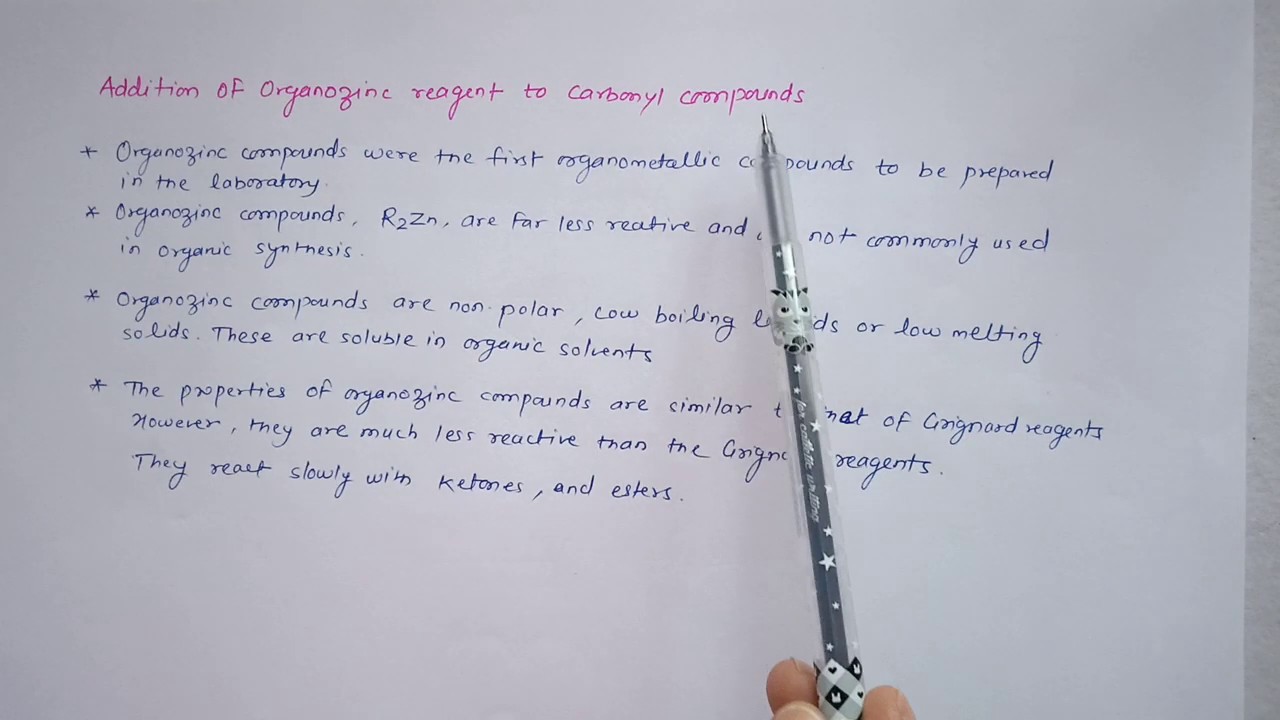 Addition of Organozinc reagent to carbonyl compounds
* Organozinc compounds were the first organometallic compounds to be prepared
in the laboratory.
* Organozinc compounds, R2Zn, are far less reative and not commonly used
in organic synthesis.
* Organozinc compounds are non-polar, low boiling or low melting
solids. These are soluble in organic solvents
* The properties of organozinc compounds are similar that of Grignard reagents
However, they are much less reactive than the Grignard reagents.
They react slowly with ketones, and esters.